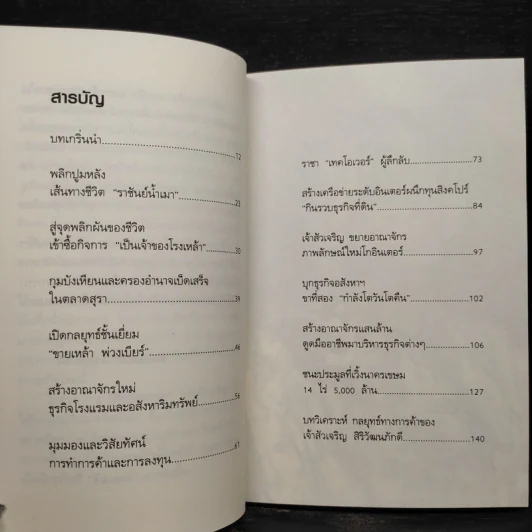 สารบัญ
บทเกริ่นนำ
12
พลิกปูมหลัง
เส้นทางชีวิต "ราชันย์น้ำเมา"
23
สู่จุดพลิกผันของชีวิต
เข้าซื้อกิจการ "เป็นเจ้าของโรงเหล้า"
30
กุมบังเหียนและครองอำนาจเบ็ดเสร็จ
ในตลาดสุรา
39
เปิดกลยุทธ์ชั้นเยี่ยม
"ขายเหล้า พ่วงเบียร์"
46
สร้างอาณาจักรใหม่
ธุรกิจโรงแรมและอสังหาริมทรัพย์
56
มุมมองและวิสัยทัศน์
การทำการค้าและการลงทุน
61
ราชา "เทคโอเวอร์" ผู้ลึกลับ
73
สร้างเครือข่ายระดับอินเตอร์ผนึกทุนสิงคโปร์
"กินรวบธุรกิจที่ดิน"
84
เจ้าสัวเจริญ ขยายอาณาจักร
ภาพลักษณ์ใหม่โกอินเตอร์
97
บุกธุรกิจอสังหาฯ
ขาที่สอง "กำลังโตวันโตคืน"
102
สร้างอาณาจักรแสนล้าน
ดูดมืออาชีพมาบริหารธุรกิจต่างๆ
106
ชนะประมูลที่เวิ้งนาครเขษม
14 ไร่ 5,000 ล้าน
127
บทวิเคราะห์ กลยุทธ์ทางการค้าของ
เจ้าสัวเจริญ สิริวัฒนภักดี
140